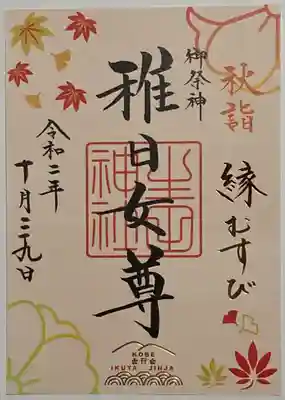 秋詣
縁むすび
御祭神
稚日女尊
生田神社
令和二年
十月三十九日
KOBE
IKUTA JINJA